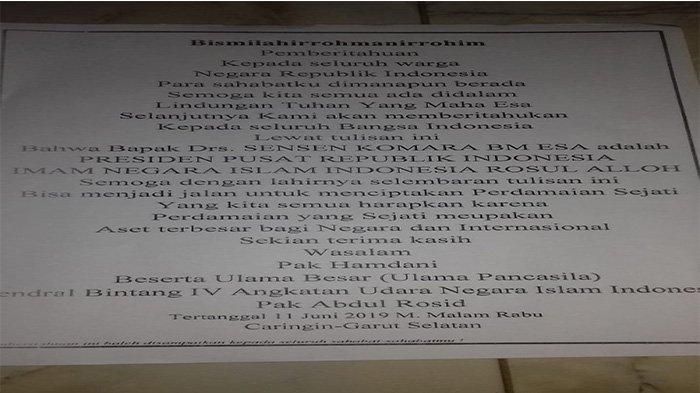 Bismilahirrohmanirrohim
Pemberitahuan
Kepada seluruh warga
Negara Republik Indonesia
Para sahabatku dimanapun berada
Semoga kita semua ada didalam
Lindungan Tuhan Yang Maha Esa
Selanjutnya Kami akan memberitahukan
Kepada seluruh Bangsa Indonesia
Lewat tulisan ini
Bahwa Bapak Drs. SENSEN KOMARA BM ESA adalah
PRESIDEN PUSAT REPUBLIK INDONESIA
IMAM NEGARA ISLAM INDONESIA ROSUL ALLOH
Semoga dengan lahirnya selembaran tulisan ini
Bisa menjadi jalan untuk menciptakan Perdamaian Sejati
Yang kita semua harapkan karena
Perdamaian yang Sejati meupakan
Aset terbesar bagi Negara dan Internasional
Sekian terima kasih
Wasalam
Pak Hamdani
Beserta Ulama Besar (Ulama Pancasila)
endral Bintang IV Angkatan Udara Negara Islam Indones
Pak Abdul Rosid
Tertanggal 11 Juni 2019 M. Malam Rabu
Caringin-Garut Selatan
ini boleh disampaikan kepada seluruh sahabat-sahabatmu !